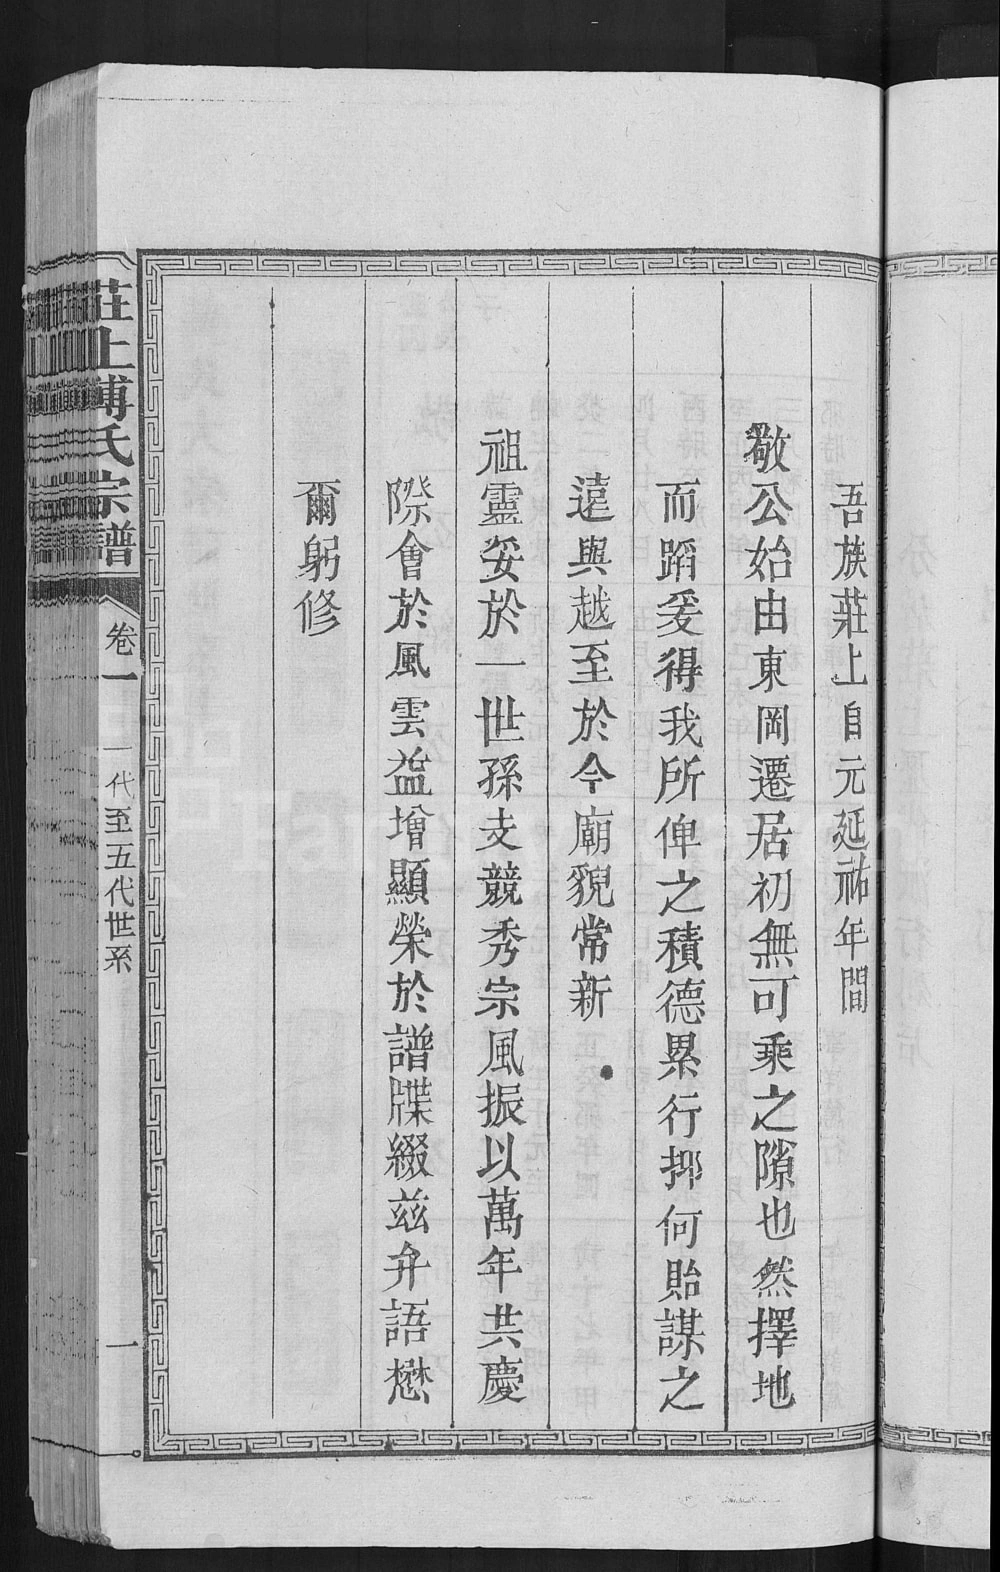 吾族莊上自元延祐年間
敬公始由東岡遷居初無可乘之隙也然擇地
而蹈爰得我所俾之積德累行抑何貽謀之
遠與越至於今廟貌常新
祖靈妥於一世孫支競秀宗風振以萬年共慶
際會於風雲益增顯榮於譜牒綴茲弁語懋
爾躬修
莊上傅氏宗譜
卷一
一代至五代世系
一